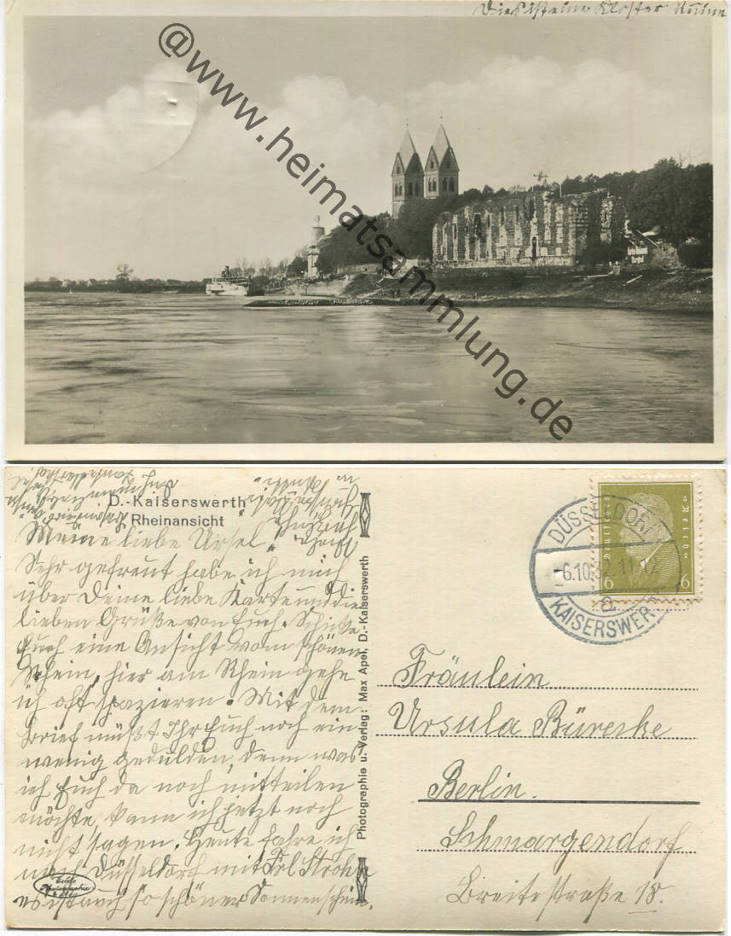 @www.heimatsammlung.de
D.-Kaiserswerth
Rheinansicht
Meine liebe Ursel!
Sehr gefreut habe ich mich
über Deine liebe Karte und die
lieben Grüße von Euch. Schicke
Euch eine Ansicht vom schönen
Rhein, hier am Rhein gehe
ich oft spazieren. Mit dem
Brief müßt Ihr Euch noch ein
wenig gedulden, denn was
ich Euch da noch mitteilen
möchte, kann ich jetzt noch
nicht sagen. Heute fahre ich
nach Düsseldorf mit Frl.
es ist auch so schöner Sonnenschein.
Photographie u. Verlag: Max Apel, D.-Kaiserswerth
DÜSSELDORF
-6.10.32.11-12
a
KAISERSWERTH
Deutsches Reich
6 6
Fräulein
Ursula
Berlin.
Schmargendorf
Breitestraße 18.